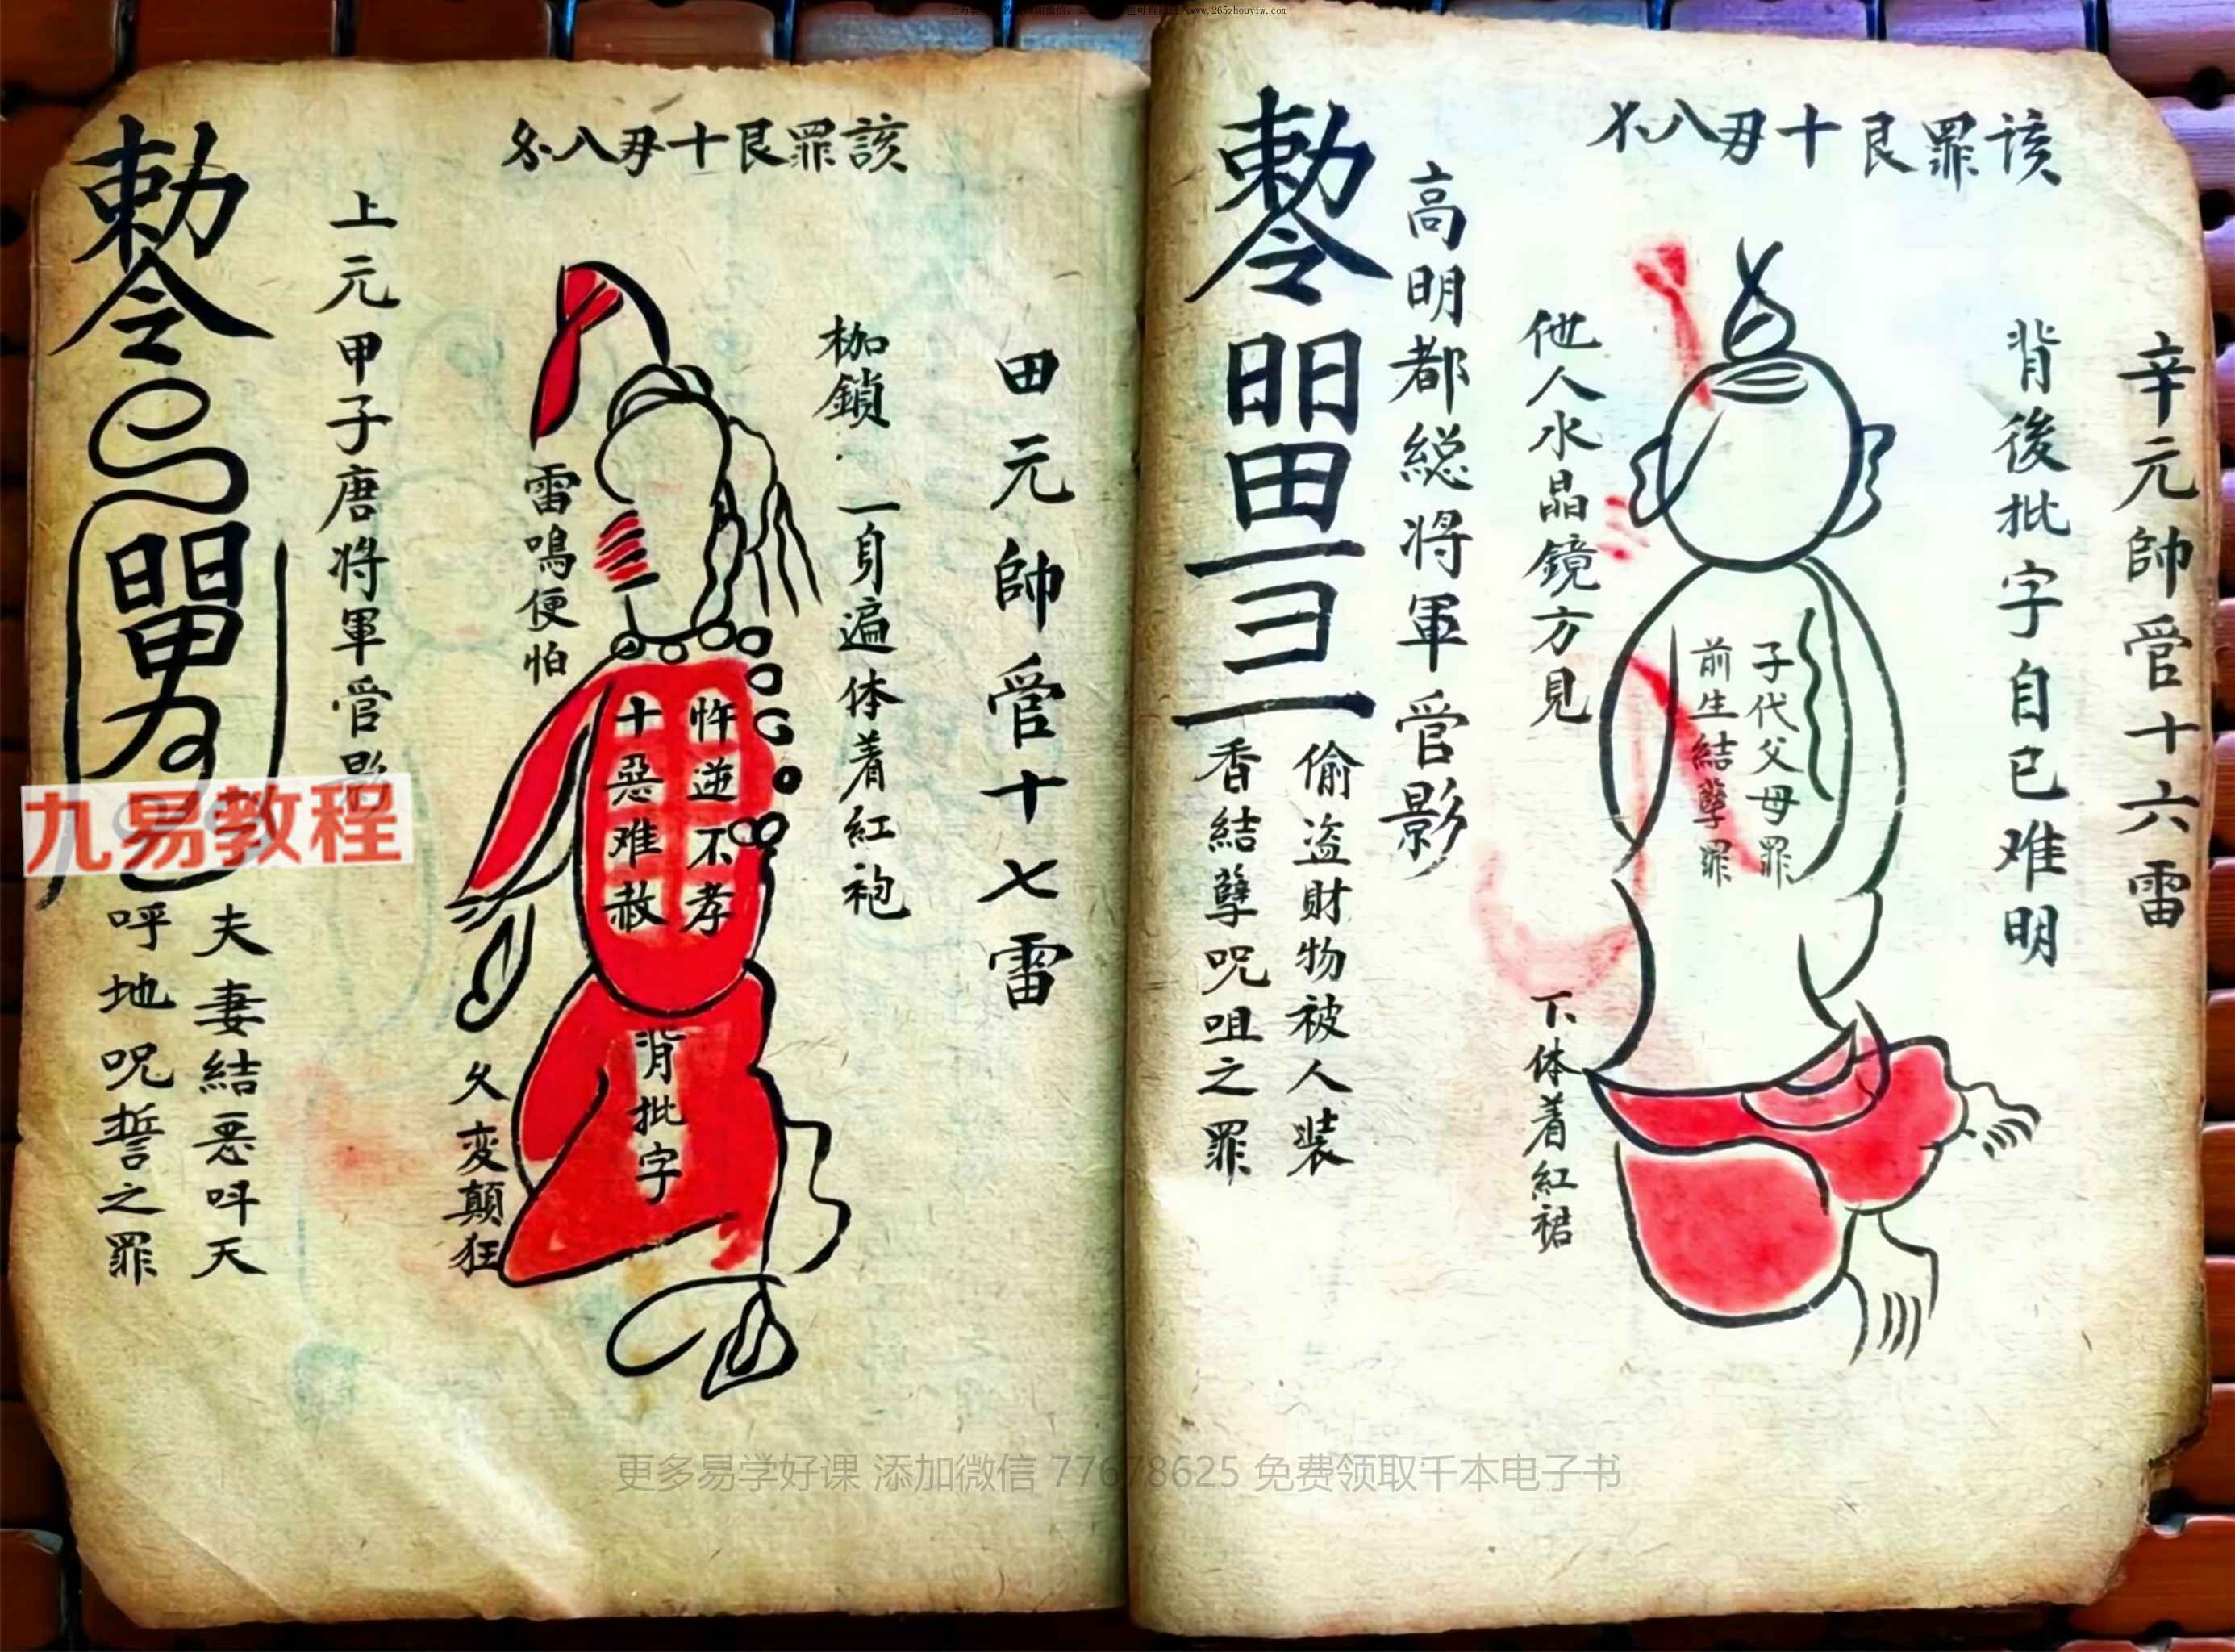 辛元帥管十六雷
背後批字自己难明
該罪艮十毋八
子代父母罪
前生結孽罪
他人水晶鏡方見
下体着紅裙
高明都総将軍管影
勅令
偷盗財物被人装
香結孽呪咀之罪
田元帥管十七雷
該罪艮十毋八
枷鎖
一身遍体着紅袍
忤逆不孝
十惡难赦
背批字
雷鳴便怕
久変顛狂
上元甲子唐将軍管影
勅令
夫妻結惡呌天
呼地呪誓之罪
九易教程
更多易学好课 添加微信 77678625 免费领取千本电子书
www.265zhouyiw.com